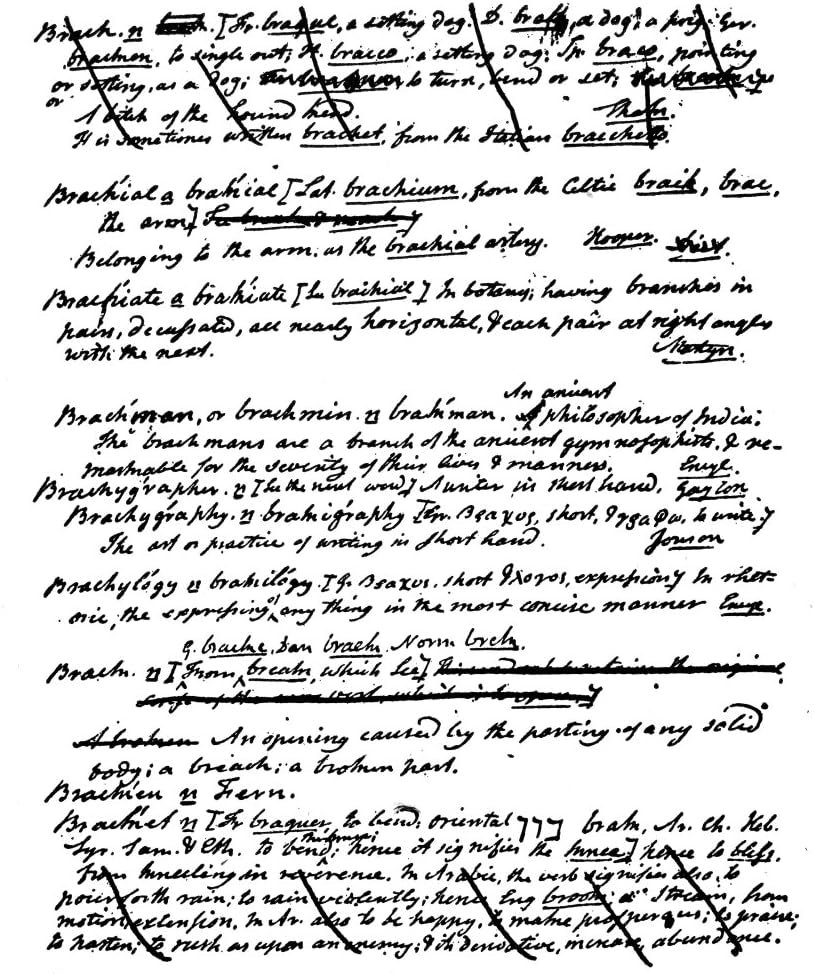 Brach. n [Fr. braque, a setting dog. D. brak, a dog; a poig. Ger.
brachen, to single out; It. bracco, a setting dog; Sp. braco, pointing
or setting, as a dog; to turn, bend or set;
or A bitch of the hound kind. Shak.
It is sometimes written brachet, from the Italian bracchetto.
Brachial a brakial [Lat. brachium, from the Celtic braik, brac,
the arm]
Belonging to the arm. as the brachial artery. Hooper.
Brachiate a brakiate [See brachial] In botany, having branches in
pairs, decussated, all nearly horizontal, & each pair at right angles
with the next. Martyn.
An ancient
Brachman, or brachmin. n brakman. philosopher of India;
The brachmans are a branch of the ancient gymnosophists, & re-
markable for the severity of their lives & manners. Encyc.
Brachygrapher. n [See the next word] A writer in short hand. Gayton
Brachygraphy. n brakigraphy [Gr. βραχυς, short, & γραφω, to write.]
The art or practice of writing in short hand. Jonson
Brachylogy n brakilogy. [Gr βραχυς. short & λογος, expression] In rhet-
oric, the expressing of any thing in the most concise manner Encyc.
G. brache, Dan braek. Norm brek.
Brack. n [From break, which See]
An opening caused by the parting of any solid
body; a breach; a broken part.
Bracken n Fern.
Bracket n [Fr braquer, to bend; oriental ברך brak, Ar. Ch. Heb.
Syr. Sam. & Eth. to bend the knee; hence it signifies the knee] hence to bless.
from kneeling in reverence. In Arabic, the verb signifies also, to
pour forth rain; to rain violently; hence Eng brook; a Stream, from
motion, extension. In Ar. also to be happy, to make prosperous; to praise;
to hasten; to rush as upon an enemy; & its derivative, increase, abundance.